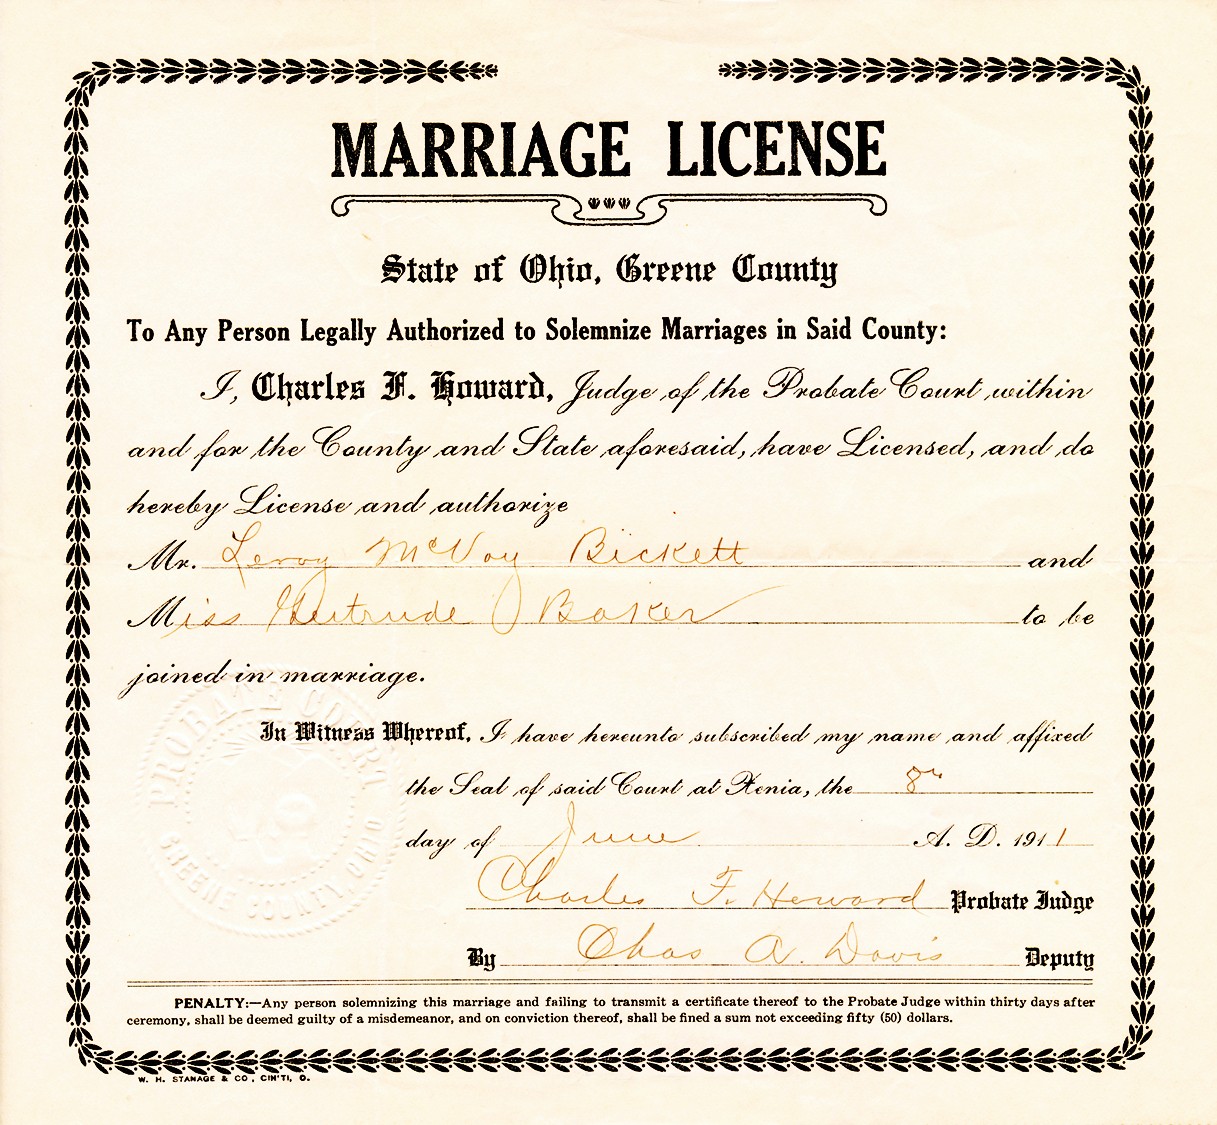 MARRIAGE LICENSE
State of Ohio, Greene County
To Any Person Legally Authorized to Solemnize Marriages in Said County:
I, Charles F. Howard, Judge of the Probate Court within
and for the County and State aforesaid, have Licensed, and do
hereby License and authorize
Mr. Leroy McVoy Bickett and
Miss Gertrude J Baker to be
joined in marriage.
In Witness Whereof, I have hereunto subscribed my name and affixed
the Seal of said Court at Xenia, the 8th
day of June A. D. 1911
Charles F. Howard Probate Judge
By Chas A. Davis Deputy
PROBATE COURT
GREENE COUNTY, OHIO
PENALTY:—Any person solemnizing this marriage and failing to transmit a certificate thereof to the Probate Judge within thirty days after
ceremony, shall be deemed guilty of a misdemeanor, and on conviction thereof, shall be fined a sum not exceeding fifty (50) dollars.
W. H. STANAGE & CO., CIN'TI, O.